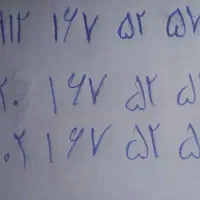 ۹۱۲ ۱۶۷ ۵۲ ۵۷
۲۰ ۱۶۷ ۵۲ ۵
۰۲ ۱۶۷ ۵۲ ۵